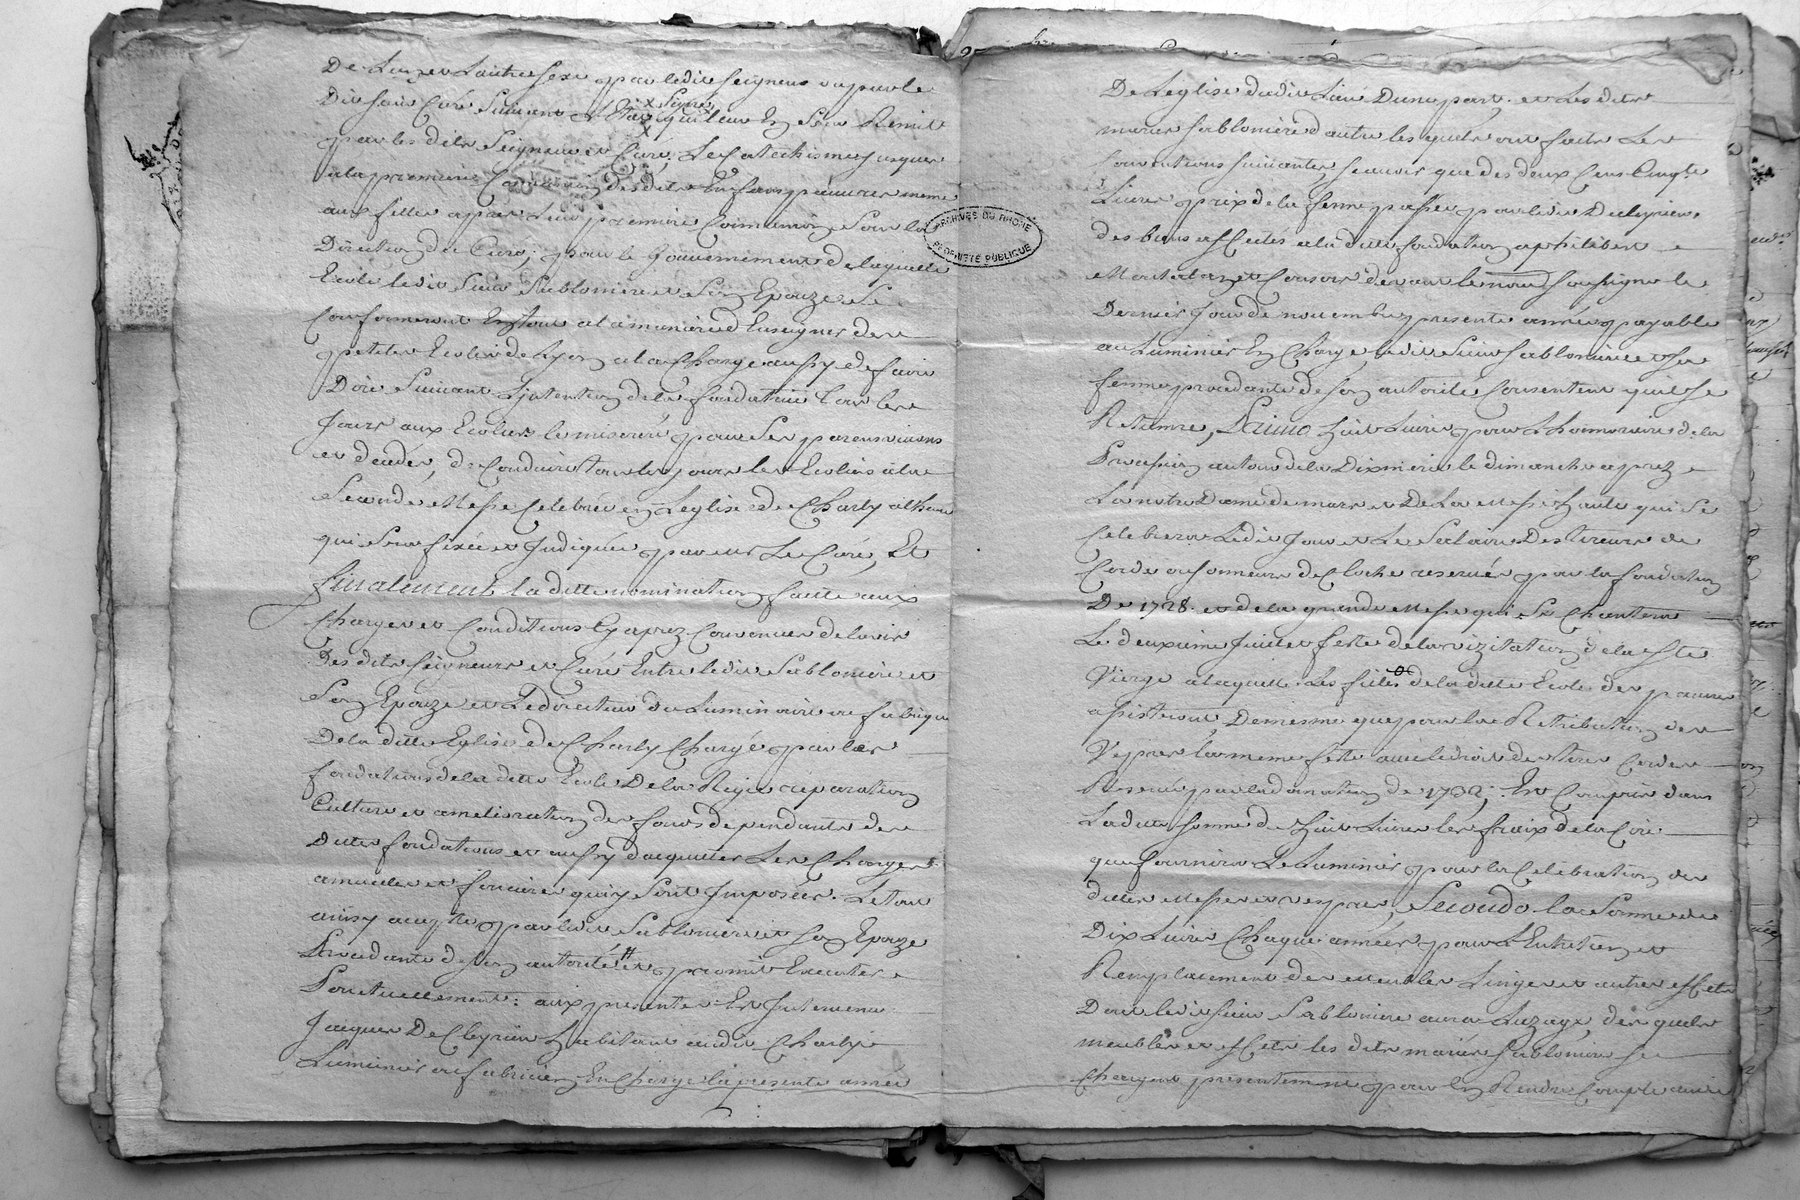 De Lun et Lautre sexe par ledit seigneur ou par le
Dit sieur Curé Suivant L'Etat x signé x qui leur En sera Remit
par les dits Seigneur et Curé, Le Catechisme jusques
a la premiere Communion des dits Enfans pauvres meme
aux filles apres Leur premiere Communion Sous la
Direction du Curé; pour le Gouvernement de laquelle
Ecole ledit Sieur Sablonière et Son Epouze Se
Conformeront En tout a la maniere d'Enseigner des
petites Ecoles de Lyon a la Charge aussy de faire
Dire Suivant L'jntention de la fondatrice tous les
Jours aux Ecoliers le miseréré pour Ses parens vivans
et decedés, de Conduire tous les jours les Ecoliers a la
Seconde Messe Celebrée en L'eglise de Charly a l'heure
qui Sera fixée et Jndiquée par mr Le Curé, Et
finalement la ditte nomination faitte aux
Charges et Conditions Cy aprez Convenues de l'avis
Des dits seigneurs et Curé Entre ledit Sablonière et
Son Epouze et Le directeur du Luminaire ou fabrique
De la ditte Eglise de Charly Chargé par les
fondations de la ditte Ecole De la Regie réparation
Culture et amelioration des fonds dependants des
Dittes fondations et aussy d'acquiter Les Charges
annuelles et foncieres qui y Sont Jmposées. Le tout
ainsy accepté par ledit Sablonière et Son Epouze
Procedante de Son autorité # et promit Executer
Ponctuellement: aux presentes Est Jntervenu
Jacques De Cleyrieu habitant dudit Charly
Luminier ou fabricien En Charge la presente année
De L'eglise dudit Lieu D'une part. et Les dits
mariés Sablonière d'autre les quels ont fait Les
Conventions suivantes, scavoir que des deux Cens Vingt
Livres prix de la ferme passée par ledit Decleyrieu
des biens affectés a la ditte fondation a philibert
et Consors devant le nore soussigné le
Dernier jour de novembre presente année payable
au Luminier En Charge ledit Sieur Sablonière et sa
femme procedante de Son autorité Consentent qu'il se
Retienne, Primo huit Livres pour L'honnoraire de la
Procession autour de la Dixmerie le dimanche aprez
La notre Dame de mars et De La Messe haute qui Se
Celebrera Ledit Jour et Le Salaire Des tireurs de
Corde ou sonneurs de Cloche reservée par la fondation
De 1728. et de la grande Messe qui Se Chantera
Le deuxieme Juillet feste de la vizitation de la Ste
Vierge a laquelle Les filles de la ditte Ecole des pauvres
assisteront Demesme que pour la Retribution des
Vepres La meme feste avec le droit des tires Cordes
Reservée par la donation de 1732; Est Compris dans
La ditte somme de huit Livres les fraix de la Cire
que fournira Le Luminier pour la Celebration des
dittes Messes et vepres, Secondo la Somme de
Dix Livres Chaque années pour L'Entretien et
Remplacement des Meubles Linges et autres effets
Dont ledit sieur Sablonière aura L'uzage, des quels
meubles et effets les dits mariés Sablonière se
Chargent presentement pour En Rendre Compte avec
ARCHIVES DU RHONE
PROPRIÉTÉ PUBLIQUE